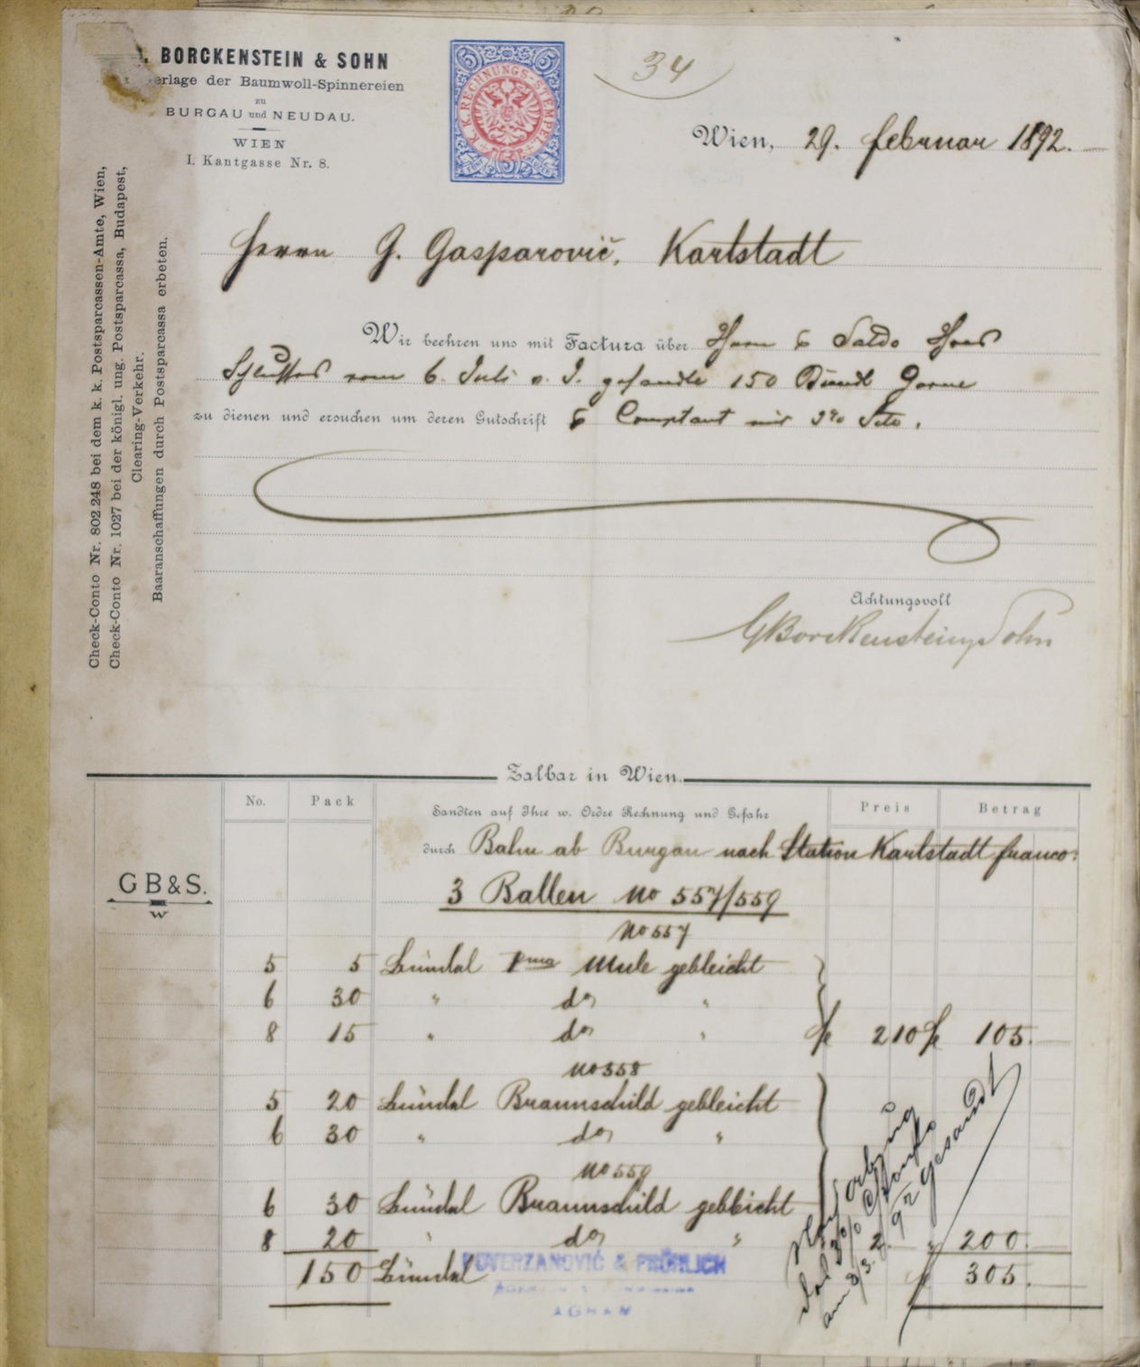 BORCKENSTEIN & SOHN
erlage der Baumwoll-Spinnereien
zu
BURGAU und NEUDAU.
WIEN
I. Kantgasse Nr. 8.
K. K. RECHNUNGS-STEMPEL
5 5
34
Wien, 29. februar 1892.
Herrn G. Gasparovič. Karlstadt
Wir beehren uns mit Factura über Saldo
Schlusses vom 6. Juli v. J. gesandte 150 Bündl Garne
zu dienen und ersuchen um deren Gutschrift Comptant mit
Achtungsvoll
GBorckenstein & Sohn
Check-Conto Nr. 802.248 bei dem k. k. Postsparcassen-Amte, Wien,
Check-Conto Nr. 1027 bei der königl. ung. Postsparcassa, Budapest,
Clearing-Verkehr.
Baaranschaffungen durch Postsparcassa erbeten.
Zalbar in Wien.
No. Pack Sandten auf Ihre w. Ordre Rechnung und Gefahr Preis Betrag
durch Bahn ab Burgau nach Station Karlstadt franco.
GB&S.
W
3 Ballen No 557/559
No 557
5 5 Bündel Ima Mule gebleicht
6 30 " do "
8 15 " do " f 2 10 f 105.
No 558
5 20 Bündel Braunschild gebleicht
6 30 " do "
No 559
6 30 Bündel Braunschild gebleicht
8 20 " do " 2. " 200.
150 Bündel f 305.
am 3/3. 92 gesandt
& FRÖHLICH
AGRAM